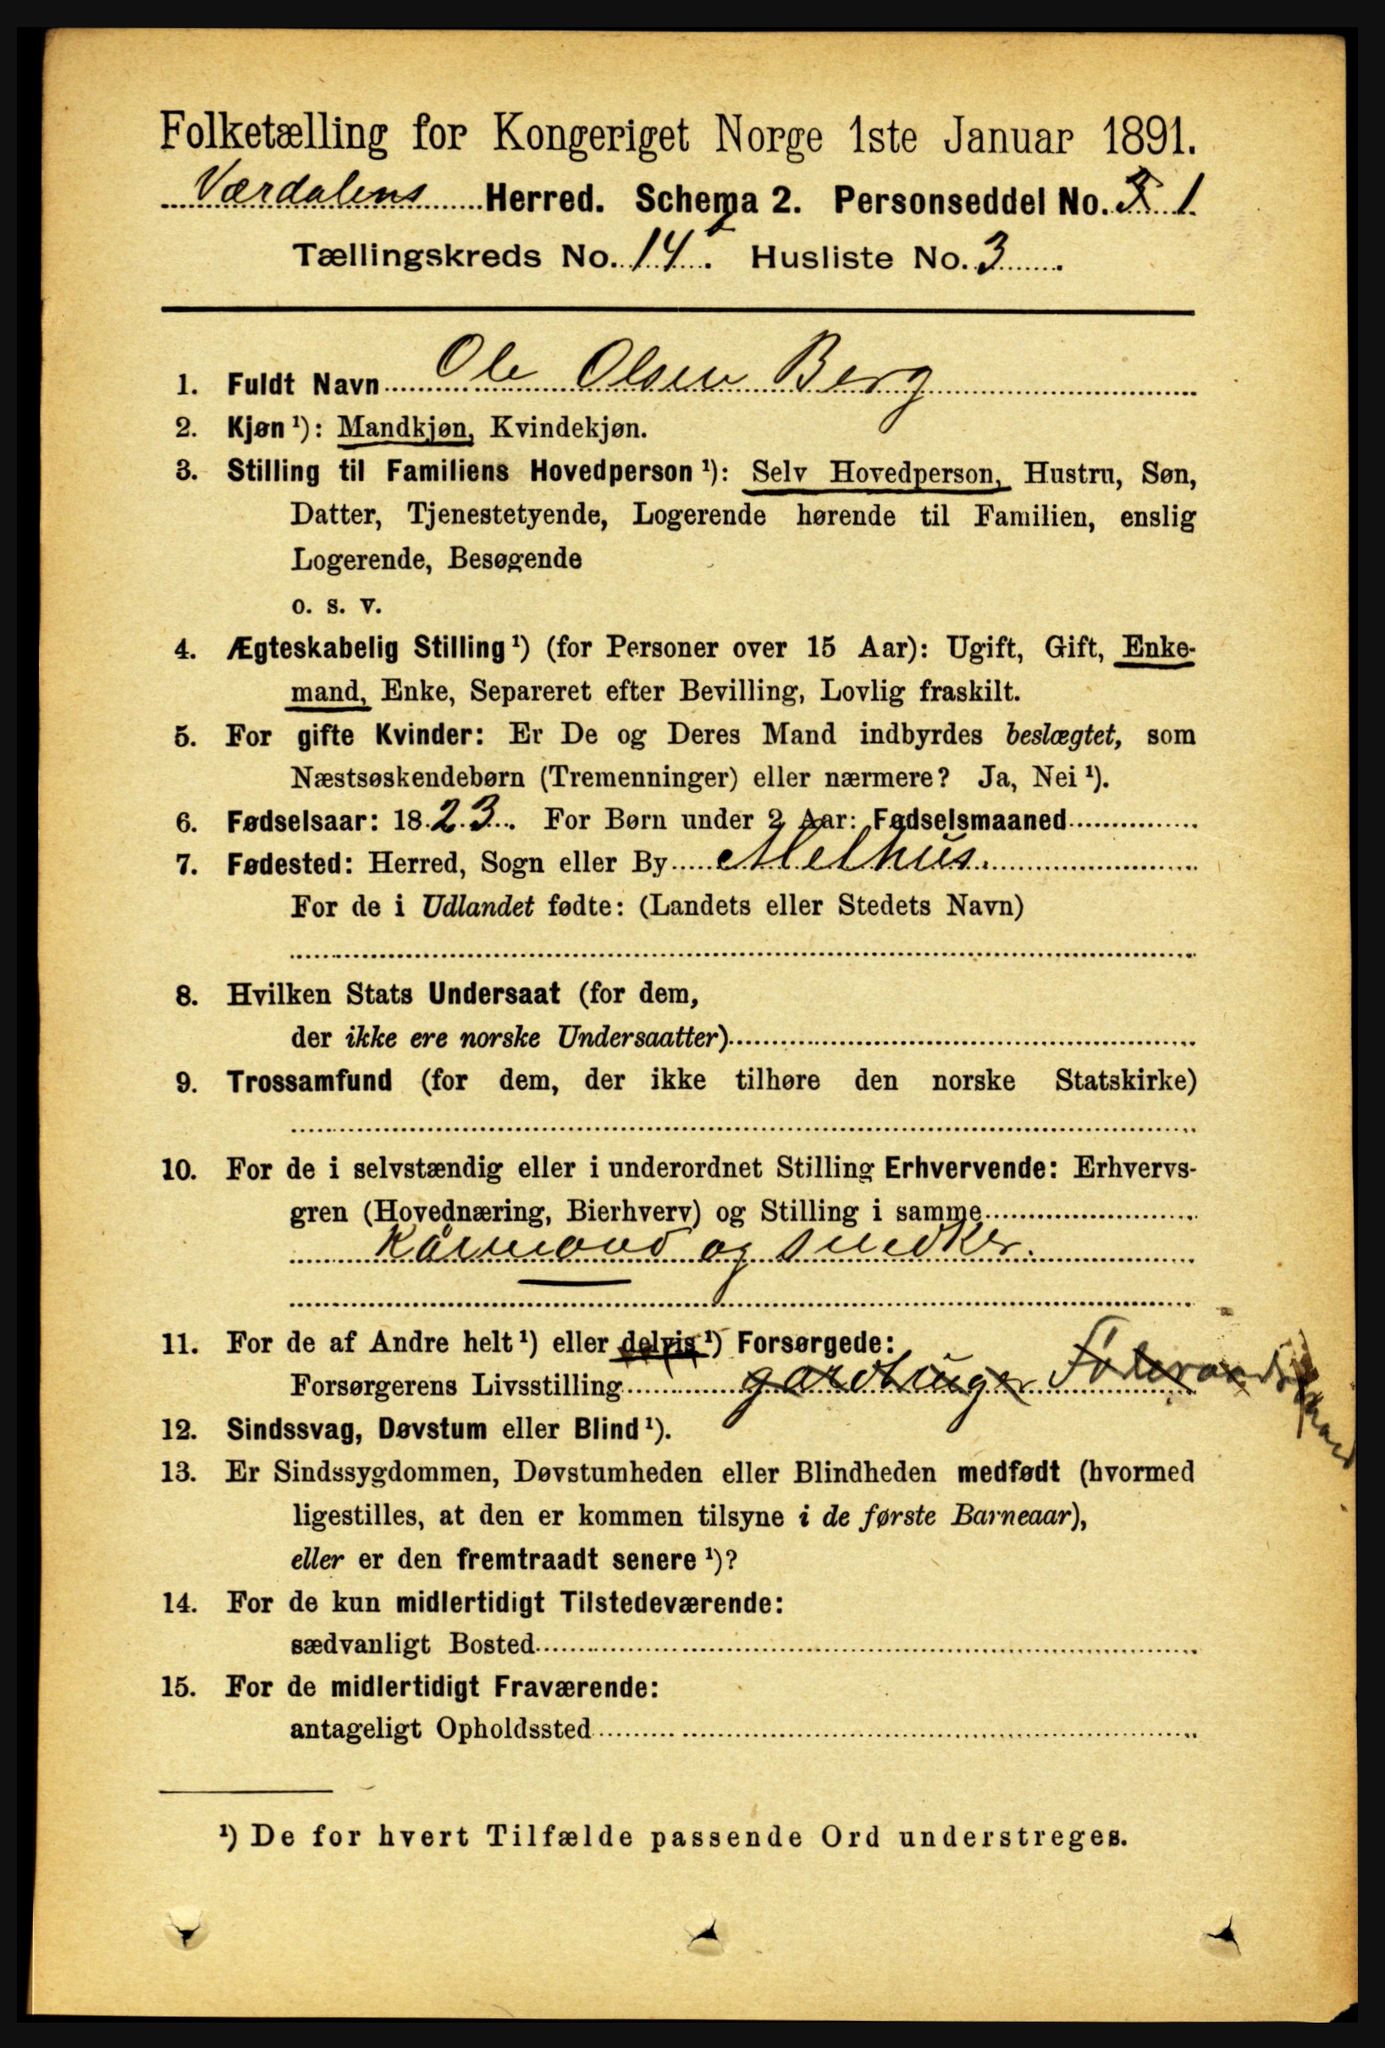 Folketælling for Kongeriget Norge 1ste Januar 1891.
Værdalens Herred. Schema 2. Personseddel No. 1
Tællingskreds No. 14. Husliste No. 3
1. Fuldt Navn Ole Olsen Berg
2. Kjøn ¹): Mandkjøn, Kvindekjøn.
3. Stilling til Familiens Hovedperson ¹): Selv Hovedperson, Hustru, Søn,
Datter, Tjenestetyende, Logerende hørende til Familien, enslig
Logerende, Besøgende
o. s. v.
4. Ægteskabelig Stilling ¹) (for Personer over 15 Aar): Ugift, Gift, Enke-
mand, Enke, Separeret efter Bevilling, Lovlig fraskilt.
5. For gifte Kvinder: Er De og Deres Mand indbyrdes beslægtet, som
Næstsøskendebørn (Tremenninger) eller nærmere? Ja, Nei ¹).
6. Fødselsaar: 1823. For Børn under 2 Aar: Fødselsmaaned
7. Fødested: Herred, Sogn eller By Melhus.
For de i Udlandet fødte: (Landets eller Stedets Navn)
8. Hvilken Stats Undersaat (for dem,
der ikke ere norske Undersaatter)
9. Trossamfund (for dem, der ikke tilhøre den norske Statskirke)
10. For de i selvstændig eller i underordnet Stilling Erhvervende: Erhvervs-
gren (Hovednæring, Bierhverv) og Stilling i samme
Kårmand og snedker.
11. For de af Andre helt ¹) eller delvis ¹) Forsørgede:
Forsørgerens Livsstilling gardbruger
12. Sindssvag, Døvstum eller Blind ¹).
13. Er Sindssygdommen, Døvstumheden eller Blindheden medfødt (hvormed
ligestilles, at den er kommen tilsyne i de første Barneaar),
eller er den fremtraadt senere ¹)?
14. For de kun midlertidigt Tilstedeværende:
sædvanligt Bosted
15. For de midlertidigt Fraværende:
antageligt Opholdssted
¹) De for hvert Tilfælde passende Ord understreges.